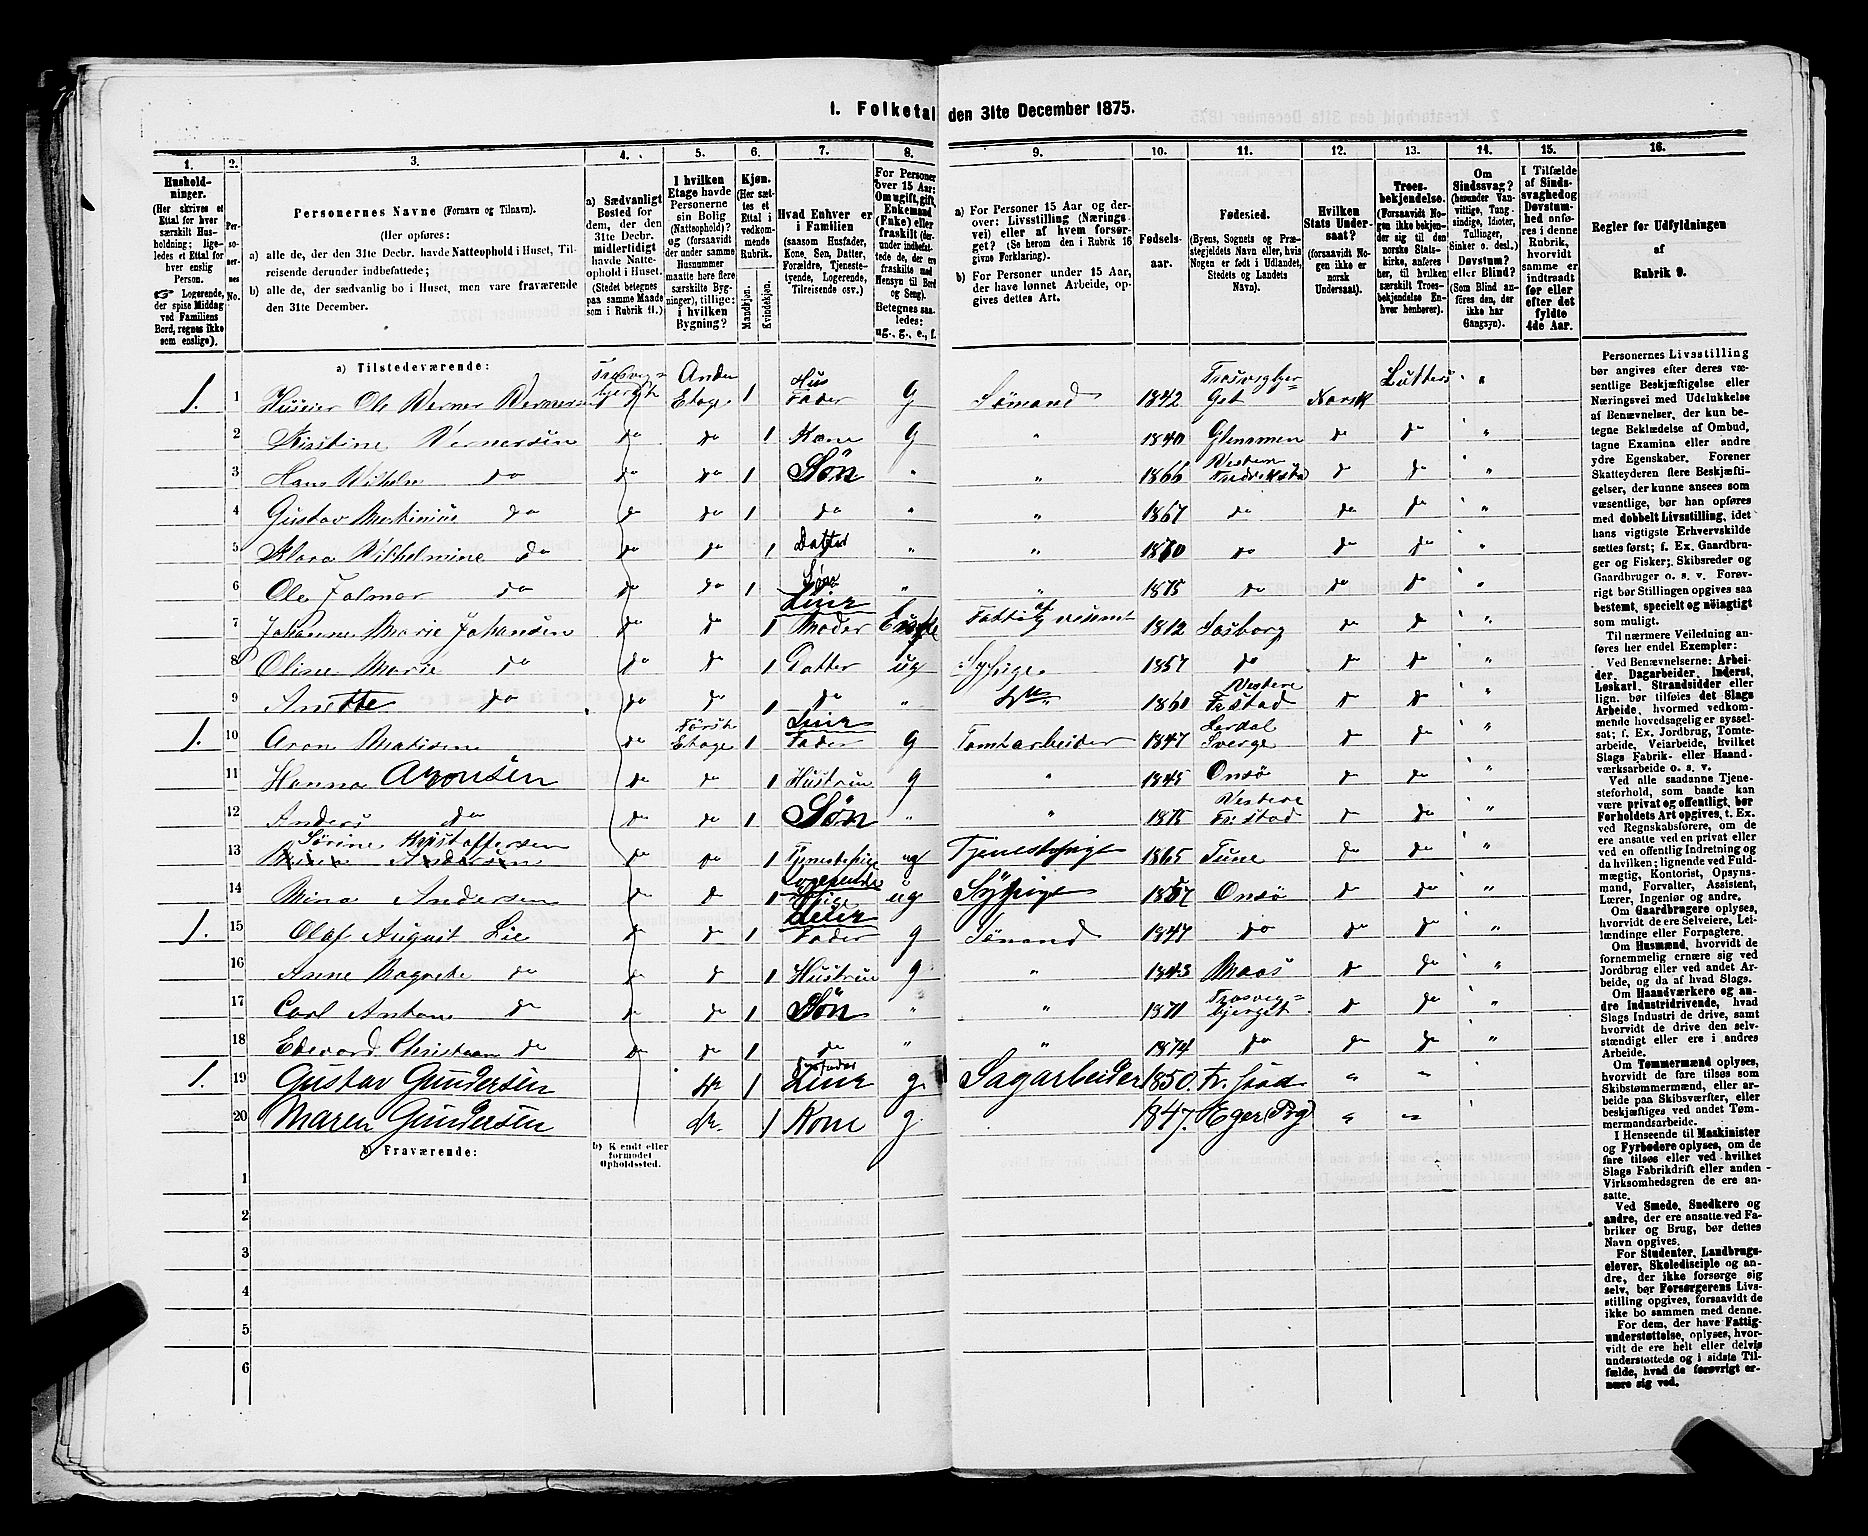 1. Folketal den 31te December 1875.
1. 2. 3. 4. 5. 6. 7. 8. 9. 10. 11. 12. 13. 14. 15. 16.
Husholdninger.
(Her skrives et Ettal for hver særskilt Husholdning; ligeledes et Ettal for hver enslig Person.
☞ Logerende, der spise Middag ved Familiens Bord, regnes ikke som enslige).
Personernes No.
Personernes Navne (Fornavn og Tilnavn).
(Her opføres:
a) alle de, der den 31te Decbr. havde Natteophold i Huset, Tilreisende derunder indbefattede;
b) alle de, der sædvanlig bo i Huset, men vare fraværende den 31te December.
a) Sædvanligt Bosted for dem, der den 31te Decbr. midlertidigt havde Natteophold i Huset. (Stedet betegnes paa samme Maade som i Rubrik 11.)
I hvilken Etage havde Personerne sin Bolig (Natteophold)? og (forsaavidt der under samme Husnummer maatte høre flere særskilte Bygninger), tillige: i hvilken Bygning?
Kjøn.
(Her sættes et Ettal i vedkommende Rubrik.
Mandkjøn. Kvindekjøn.
Hvad Enhver er i Familien
(saasom Husfader, Kone, Søn, Datter, Forældre, Tjenestetyende, Logerende, Tilreisende osv.)
For Personer over 15 Aar: Om ugift, gift, Enkemand (Enke) eller fraskilt (derunder indbefattede de, der ere fraskilte med Hensyn til Bord og Seng). Betegnes saaledes: ug., g., e., f.
a) For Personer 15 Aar og derover: Livsstilling (Næringsvei) eller af hvem forsørget? (Se herom den i Rubrik 16 givne Forklaring).
b) For Personer under 15 Aar, der have lønnet Arbeide, opgives dettes Art.
Fødselsaar.
Fødested.
(Byens, Sognets og Præstegjeldets Navn eller, hvis Nogen er født i Udlandet, Stedets og Landets Navn).
Hvilken Stats Undersaat?
(forsaavidt Nogen ikke er norsk Undersaat).
Troesbekjendelse.
(Forsaavidt Nogen ikke bekjender sig til den norske Statskirke, anføres her, til hvilken særskilt Troesbekjendelse Enhver henhører).
Om Sindssvag? (herunder Vanvittige, Tungsindige, Idioter, Tullinger, Sinker o. desl.). Døvstum? eller Blind? (Som Blind anføres den, der ikke har Gangsyn).
I Tilfælde af Sindssvaghed og Døvstumhed anføres i denne Rubrik, hvorvidt samme er indtraadt før eller efter det fyldte 4de Aar.
Regler for Udfyldningen af Rubrik 9.
a) Tilstedeværende:
1. 1 Huseier Ole Werner Wernersen Anden Etage 1 Hus Fader g Sømand 1842 Norsk Luthers "
2 Kristine Wernersen do do 1 Kone g " 1840 Glemmen do do "
3 Hans Wilhelm do do do 1 Søn " " 1866 Vestern Fredrikstad do do "
4 Gustav Martinius do do do 1 do " " 1867 do do do "
5 Klara Wilhelmine do do do 1 Datter " " 1870 do do do "
6 Ole Jalmar do do do 1 Søn " " 1875 do do do "
7 Johanne Marie Johansen do do 1 Leier Moder Enke 1812 do do "
8 Oline Marie do do do 1 Datter ug Sypige 1857 do do do "
9 Anette do do do 1 do " do 1860 Vestere Frstad do do "
1. 10 Aron Matisen do Første Etage 1 Leier Fader g Tomtarbeider 1847 Sverge do do "
11 Hanna Aronsen do do 1 Hustrue g " 1845 Onsø do do "
12 Anders do do do 1 Søn " " 1875 Vestere Frestad do do "
13 Sørine Kristoffersen do do 1 Tjenestepige ug Tjenestepige 1865 Tune do do "
14 Mina Andersen do do 1 Logerende Pige ug Sypige 1857 Onsø do do "
1. 15 Olaf August Lie do do 1 Leier Fader g Sømand 1847 do do do "
16 Anne Magrete do do do 1 Hustrue g " 1843 Moss do do "
17 Carl Anton do do do 1 Søn " " 1871 Trosvigbjerget do do "
18 Edevard Christian do do do 1 do " " 1874 do do do "
1. 19 Gustav Gundersen do 1 Husfader Leier g. Sagarbeider 1850. Fr.stad " "
20 Maren Gundersen do. 1 Kone g. 1847. Eger (Prg) " "
b) Fraværende:
b) Kjendt eller formodet Opholdssted.
1
2
3
4
5
6
Personernes Livsstilling bør angives efter deres væsentlige Beskjæftigelse eller Næringsvei med Udelukkelse af Benævnelser, der kun betegne Beklædelse af Ombud, tagne Examina eller andre ydre Egenskaber. Forener Skatteyderen flere Beskjæftigelser, der kunne ansees som væsentlige, bør han opføres med dobbelt Livsstilling, idet hans vigtigste Erhvervskilde sættes først; f. Ex. Gaardbruger og Fisker; Skibsreder og Gaardbruger o. s. v. Forøvrigt bør Stillingen opgives saa bestemt, specielt og nøiagtigt som muligt.
Til nærmere Veiledning anføres her endel Exempler:
Ved Benævnelserne: Arbeider, Dagarbeider, Inderst, Løskarl, Strandsidder eller lign. bør tilføies det Slags Arbeide, hvormed vedkommende hovedsagelig er sysselsat; f. Ex. Jordbrug, Tomtearbeide, Veiarbeide, hvilket Slags Fabrik- eller Haandværksarbeide o. s. v.
Ved alle saadanne Tjenesteforhold, som baade kan være privat og offentligt, bør Forholdets Art opgives, t. Ex. ved Regnskabsførere, om de ere ansatte ved en privat eller ved en offentlig Indretning og da hvilken; lignende ved Fuldmægtig, Kontorist, Opsynsmand, Forvalter, Assistent, Lærer, Ingeniør og andre.
Om Gaardbrugere oplyses, hvorvidt de ere Selveiere, Leilændinge eller Forpagtere.
Om Husmænd, hvorvidt de fornemmelig ernære sig ved Jordbrug eller ved andet Arbeide, og da af hvad Slags.
Om Haandværkere og andre Industridrivende, hvad Slags Industri de drive, samt hvorvidt de drive den selvstændigt eller ere i andres Arbeide.
Om Tømmermænd oplyses, hvorvidt de fare tilsøs som Skibstømmermænd, eller arbeide paa Skibsværfter, eller beskjæftiges ved andet Tømmermandsarbeide.
I Henseende til Maskinister og Fyrbødere oplyses, om de fare tilsøs eller ved hvilket Slags Fabrikdrift eller anden Virksomhedsgren de ere ansatte.
Ved Smede, Snedkere og andre, der ere ansatte ved Fabriker og Brug, bør dettes Navn opgives.
For Studenter, Landbrugselever, Skoledisciple og andre, der ikke forsørge sig selv, bør Forsørgerens Livsstilling opgives, forsaavidt de ikke bo sammen med denne.
For dem, der have Fattigunderstøttelse, oplyses, hvorvidt de ere helt eller delvis understøttede og i sidste Tilfælde, hvad de forøvrigt ernære sig ved.